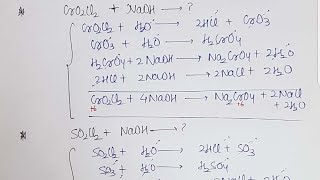 CrO2Cl2 + NaOH → ?
CrO2Cl2 + H2O → 2HCl + CrO3
CrO3 + H2O → H2CrO4
H2CrO4 + 2NaOH → Na2CrO4 + 2H2O
2HCl + 2NaOH → 2NaCl + 2H2O
CrO2Cl2 + 4NaOH → Na2CrO4 + 2NaCl + 2H2O
+6 +6
SO2Cl2 + NaOH → ?
SO2Cl2 + H2O → 2HCl + SO3
SO3 + H2O → H2SO4